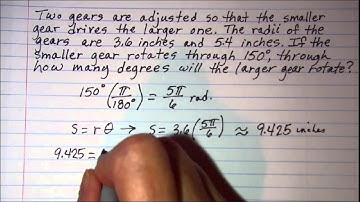 Two gears are adjusted so that the smaller
gear drives the larger one. The radii of the
gears are 3.6 inches and 5.4 inches. If the
smaller gear rotates through 150°, through
how many degrees will the larger gear rotate?
150° (π/180°) = 5π/6 rad.
s = r θ → s = 3.6 (5π/6) ≈ 9.425 inches
9.425 =